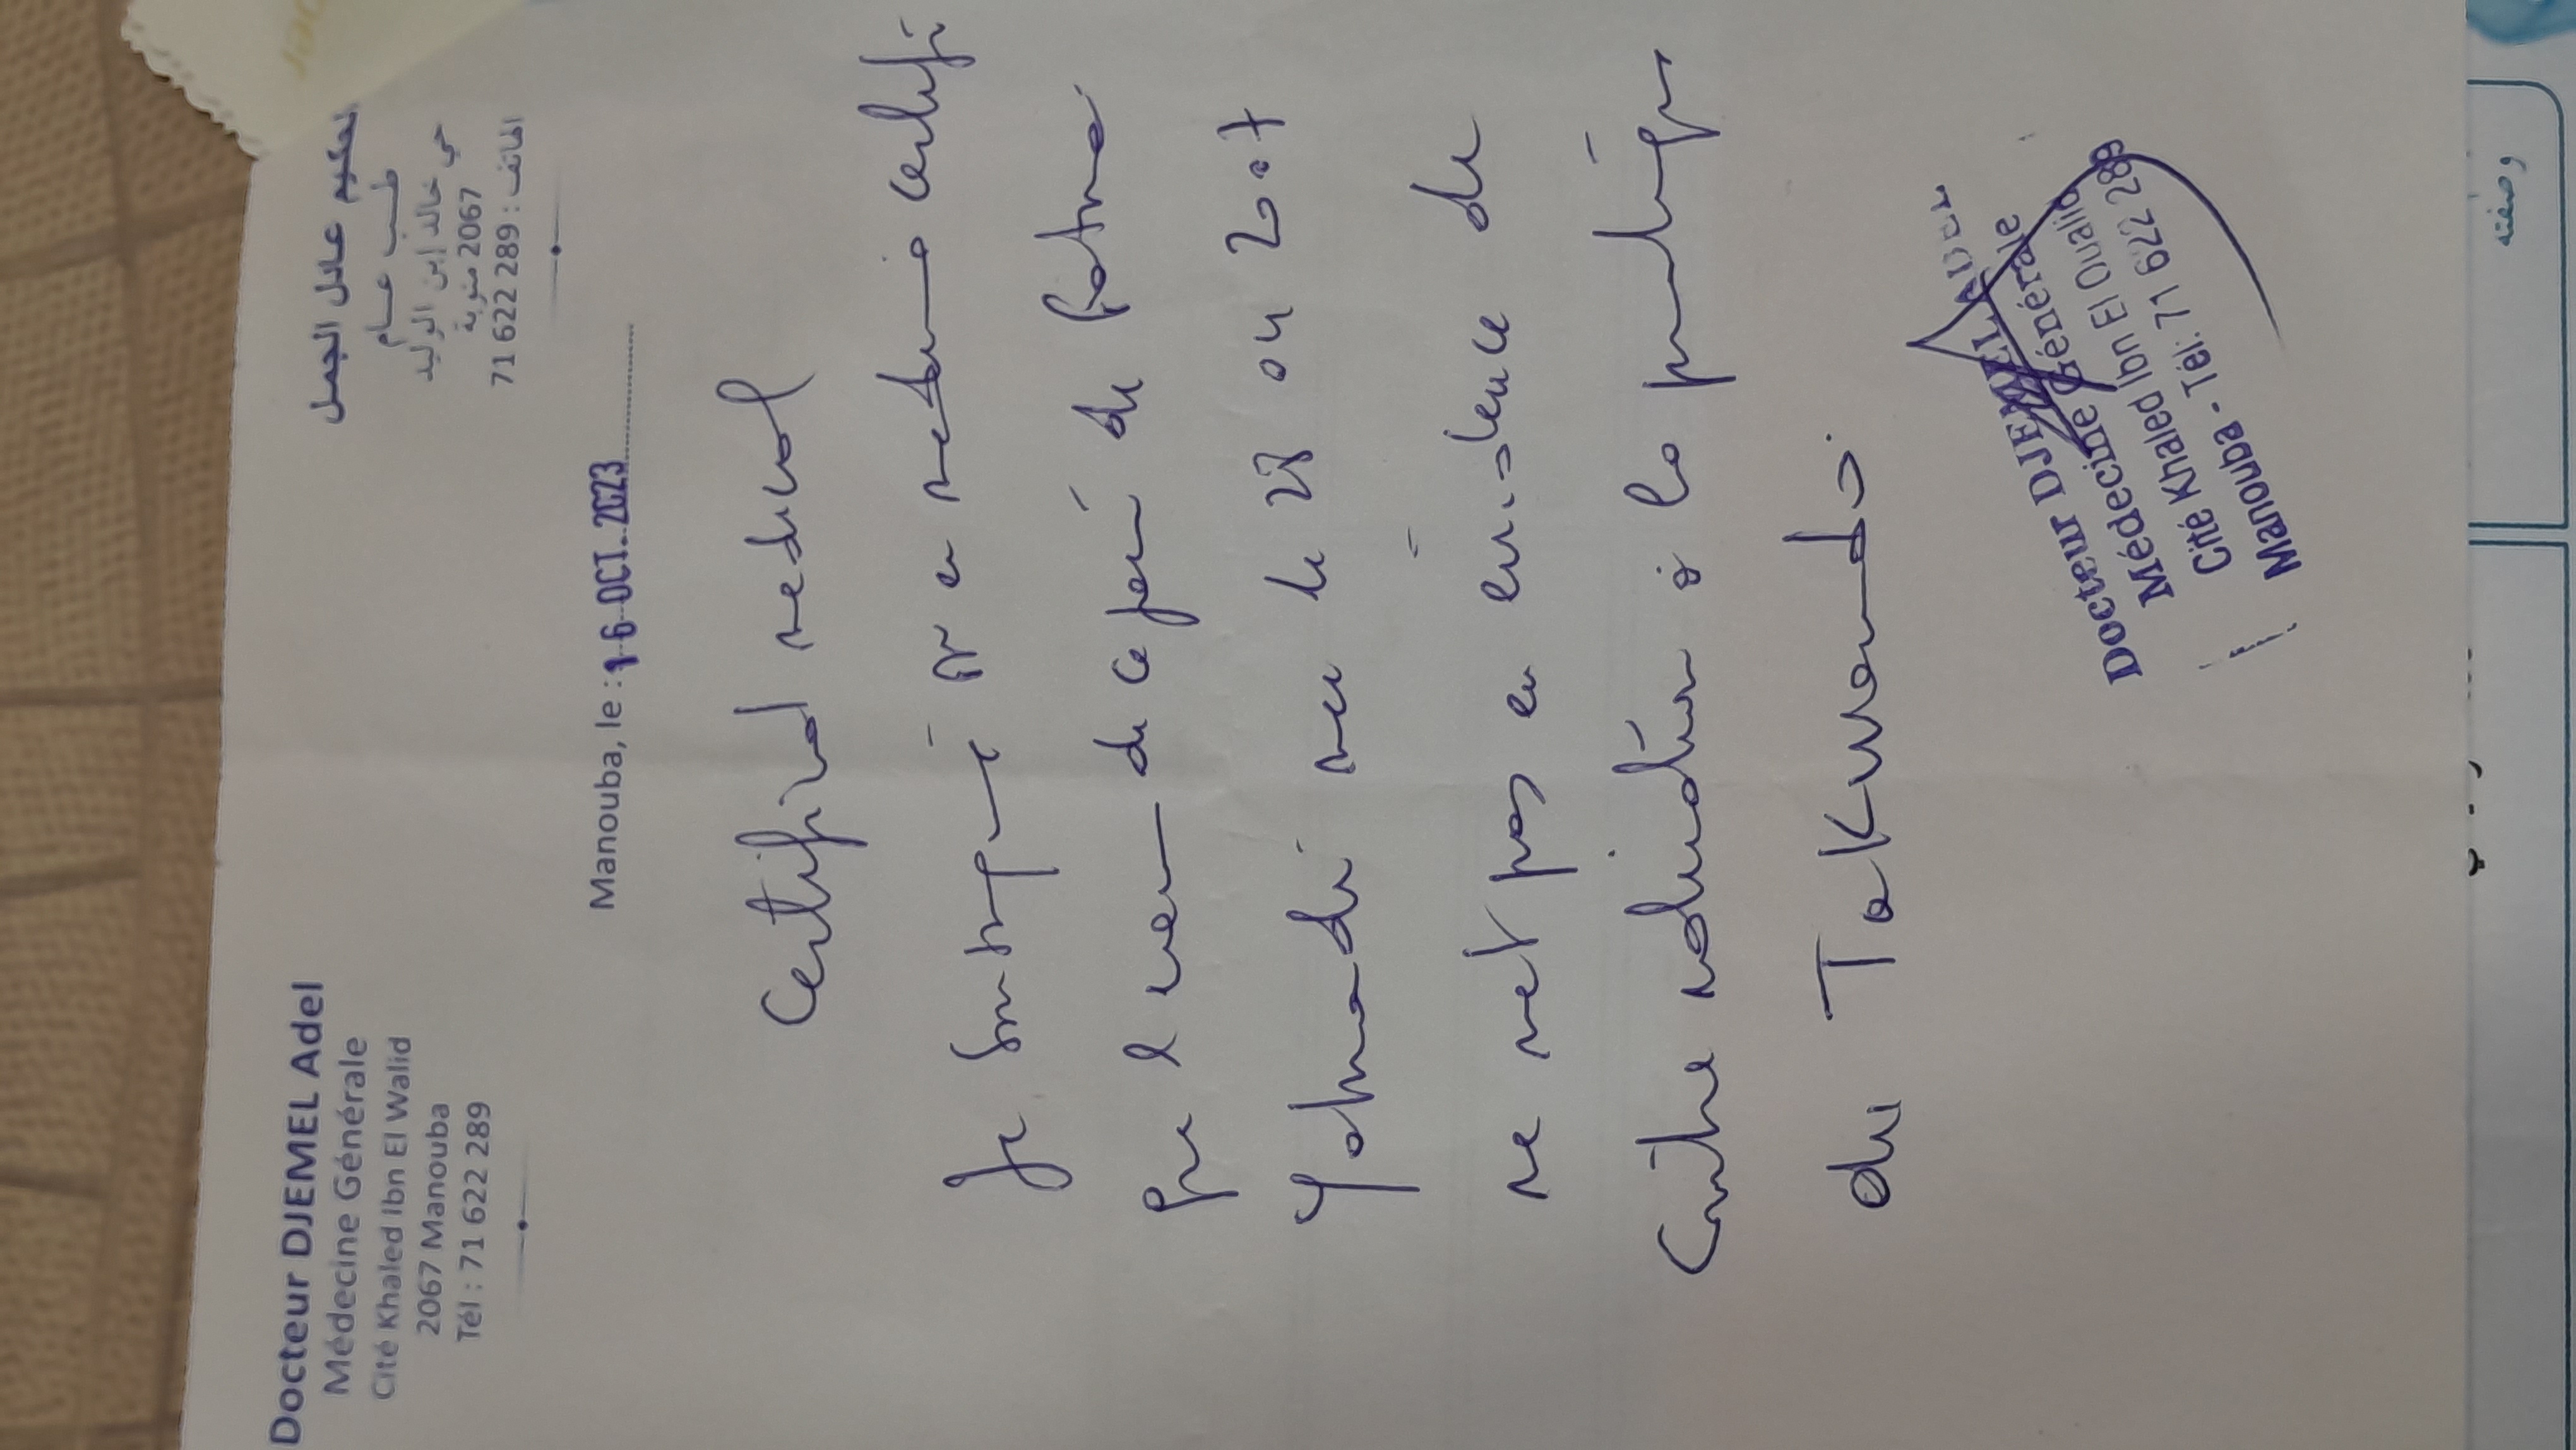 Docteur DJEMEL Adel
Médecine Générale
Cité Khaled Ibn El Walid
2067 Manouba
Tél : 71 622 289
الحكيم عادل الجمل
طب عام
حي خالد إبن الوليد
2067 منوبة
الهاتف : 289 622 71
Manouba, le : 16 OCT. 2023
Certificat medical
Je soussigné Dr en medecine certifi
que l'examen de ce jour de Fatma
Yahmadi nee le 27 04 2007
ne met pas en evidence de
Contre indication à la pratique
du Takwando.
Docteur DJEMEL ADEL
Médecine Générale
Cité Khaled Ibn El Oualid
Manouba - Tél: 71 622 289